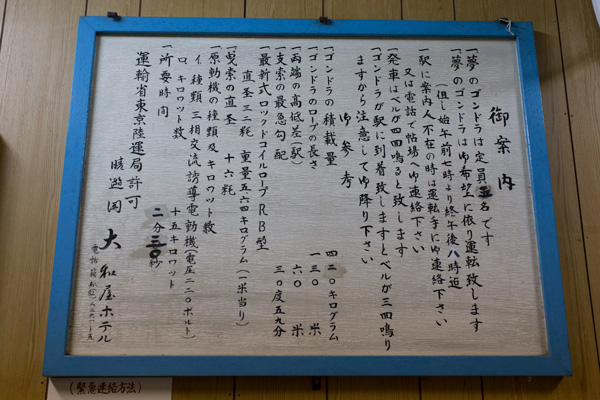 御案内
一、夢のゴンドラは定員五名です
一、夢のゴンドラは御希望に依り運転致します
(但し始午前七時より終午後八時迄
一、駅に案内人不在の時は運転手に御連絡下さい
又は電話で帖場へ御連絡下さい
一、発車はベルが四四鳴ると致します
一、ゴンドラが駅に到着致しますとベルが三四鳴り
ますから注意して御降り下さい
御参考
一、ゴンドラの積載量 四二〇キログラム
一、ゴンドラのロープの長さ 一三〇米
一、両端の高低差(駅) 六〇米
一、支索の最急勾配 三〇度五九分
一、最新式ロックドコイルロープRB型
直茎三二粍 重量五.六四キログラム(一米当り)
一、曳索の直茎 十六粍
一、原動機の種類及キロワット数
イ、種類 三相交流誘導電動機(電圧二二〇ボルト)
ロ、キロワット数 十五キロワット
一、所要時間 二分三〇秒
運輸省東京陸運局許可
勝遊閣 大和屋ホテル
電話箱根
(緊急連絡方法)